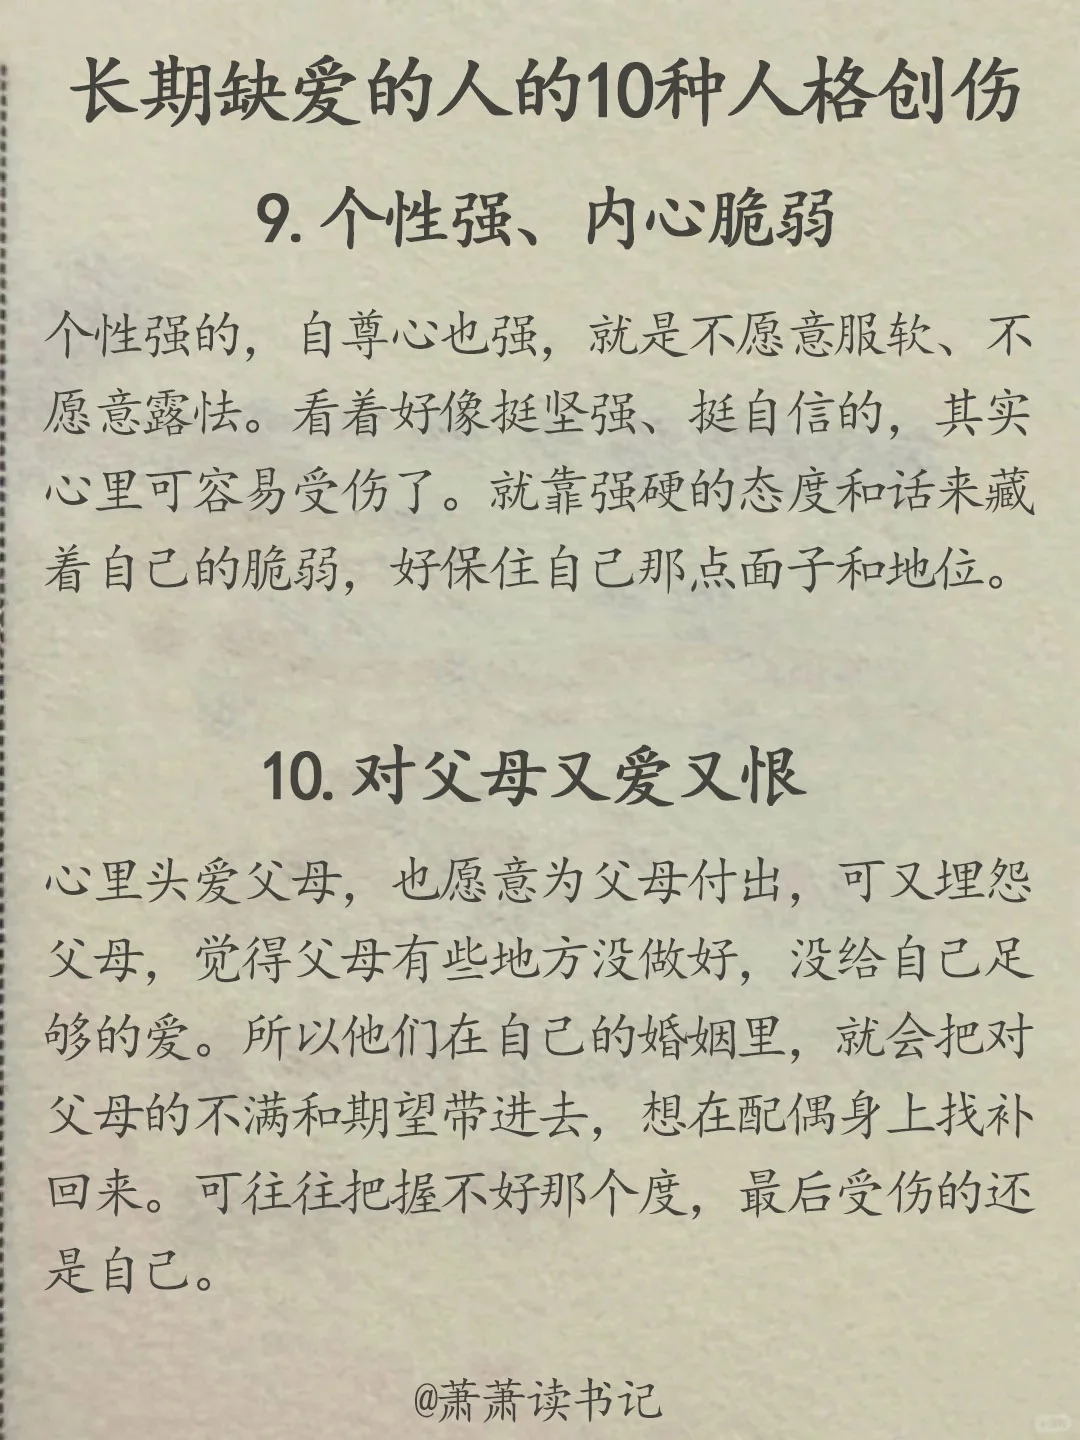 长期缺爱的人的10种人格创伤
9. 个性强、内心脆弱
个性强的，自尊心也强，就是不愿意服软、不
愿意露怯。看着好像挺坚强、挺自信的，其实
心里可容易受伤了。就靠强硬的态度和话来藏
着自己的脆弱，好保住自己那点面子和地位。
10. 对父母又爱又恨
心里头爱父母，也愿意为父母付出，可又埋怨
父母，觉得父母有些地方没做好，没给自己足
够的爱。所以他们在自己的婚姻里，就会把对
父母的不满和期望带进去，想在配偶身上找补
回来。可往往把握不好那个度，最后受伤的还
是自己。
@萧萧读书记